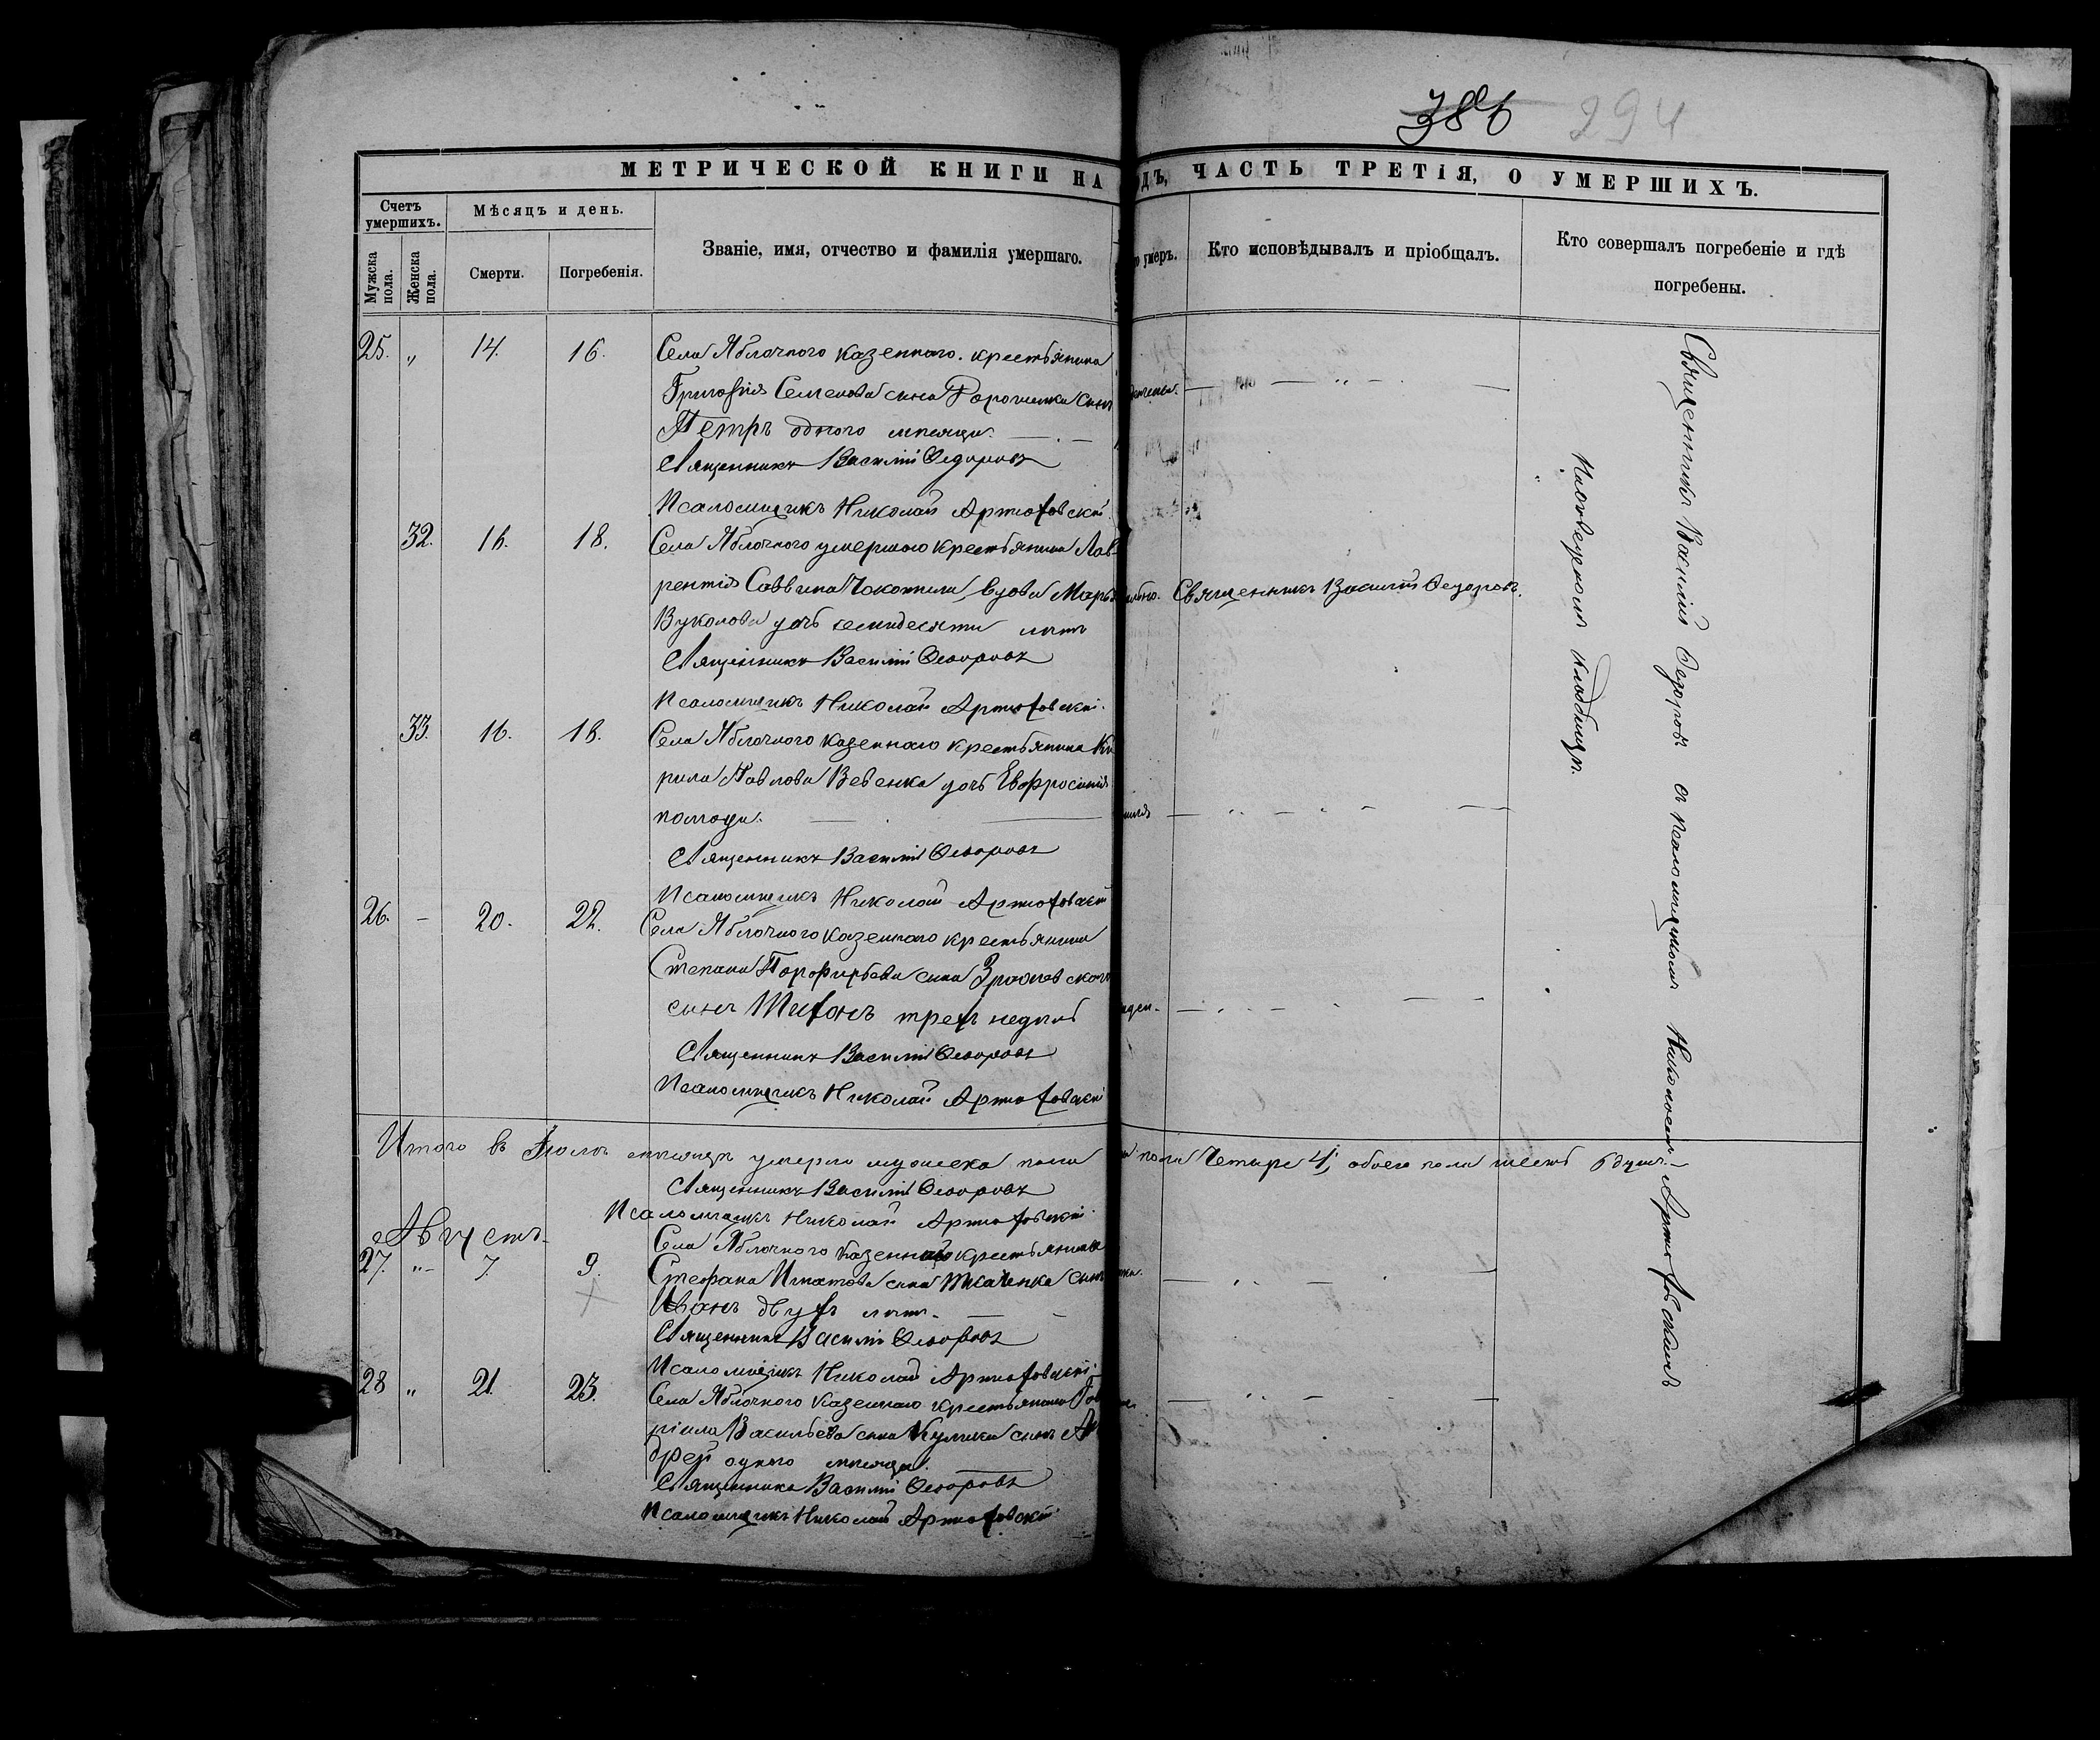 386 294
МЕТРИЧЕСКОЙ КНИГИ НА
ДЪ, ЧАСТЬ ТРЕТІЯ, О УМЕРШИХЪ.
Счетъ умершихъ.
Мужска пола.
Женска пола.
Мѣсяцъ и день.
Смерти.
Погребенія.
Званіе, имя, отчество и фамилія умершаго.
умеръ.
Кто исповѣдывалъ и пріобщалъ.
Кто совершалъ погребеніе и гдѣ
погребены.
25. „ 14. 16. Села Яблочного казенного крестьянина
Григорія Семенова сына сынъ
Петръ одного мѣсяца.
Священникъ Василій Ѳедоровъ
Псаломщикъ Николай Артюховскій
32. 16. 18. Села Яблочного умершого крестьянина Лав
рентія Саввина вдова Марья
Священникъ Василій Ѳедоровъ.
Вуколова дочь семидесяти лѣтъ
Священникъ Василій Ѳеодоровъ
Псаломщикъ Николай Артюховскій.
33. 16. 18. Села Яблочного казенного крестьянина Ки
рила Павлова Вевенка дочь Евфросинія
полгода.
Священникъ Василій Ѳеодоровъ
Псаломщикъ Николай Артюховскій
26. – 20. 22. Села Яблочного казенного крестьянина
Степана Порфирьева сына
сынъ Тихонъ трехъ недѣль
Священникъ Василій Ѳеодоровъ
Псаломщикъ Николай Артюховскій
Итого въ Іюлѣ мѣсяцѣ умерло мужеска пола
пола Четыре 4, обоего пола шесть 6 душъ.
Священникъ Василій Ѳеодоровъ
Псаломщикъ Николай Артюховскій.
Августъ.
27. „ 7. 9. Села Яблочного казенного крестьянина
Стефана Игнатова сына Ткаченка сынъ
Иванъ двухъ лѣтъ.
Священникъ Василій Ѳеодоровъ
Псаломщикъ Николай Артюховскій
28 „ 21. 23. Села Яблочного казенного крестьянина Гав
ріила Васильева сына Кулика сынъ Ан
дрей одного мѣсяца.
Священникъ Василій Ѳеодоровъ
Псаломщикъ Николай Артюховскій
Священникъ Василій Ѳедоровъ съ псаломщикомъ Николаемъ Артюховскимъ
На отведенномъ кладбищѣ.